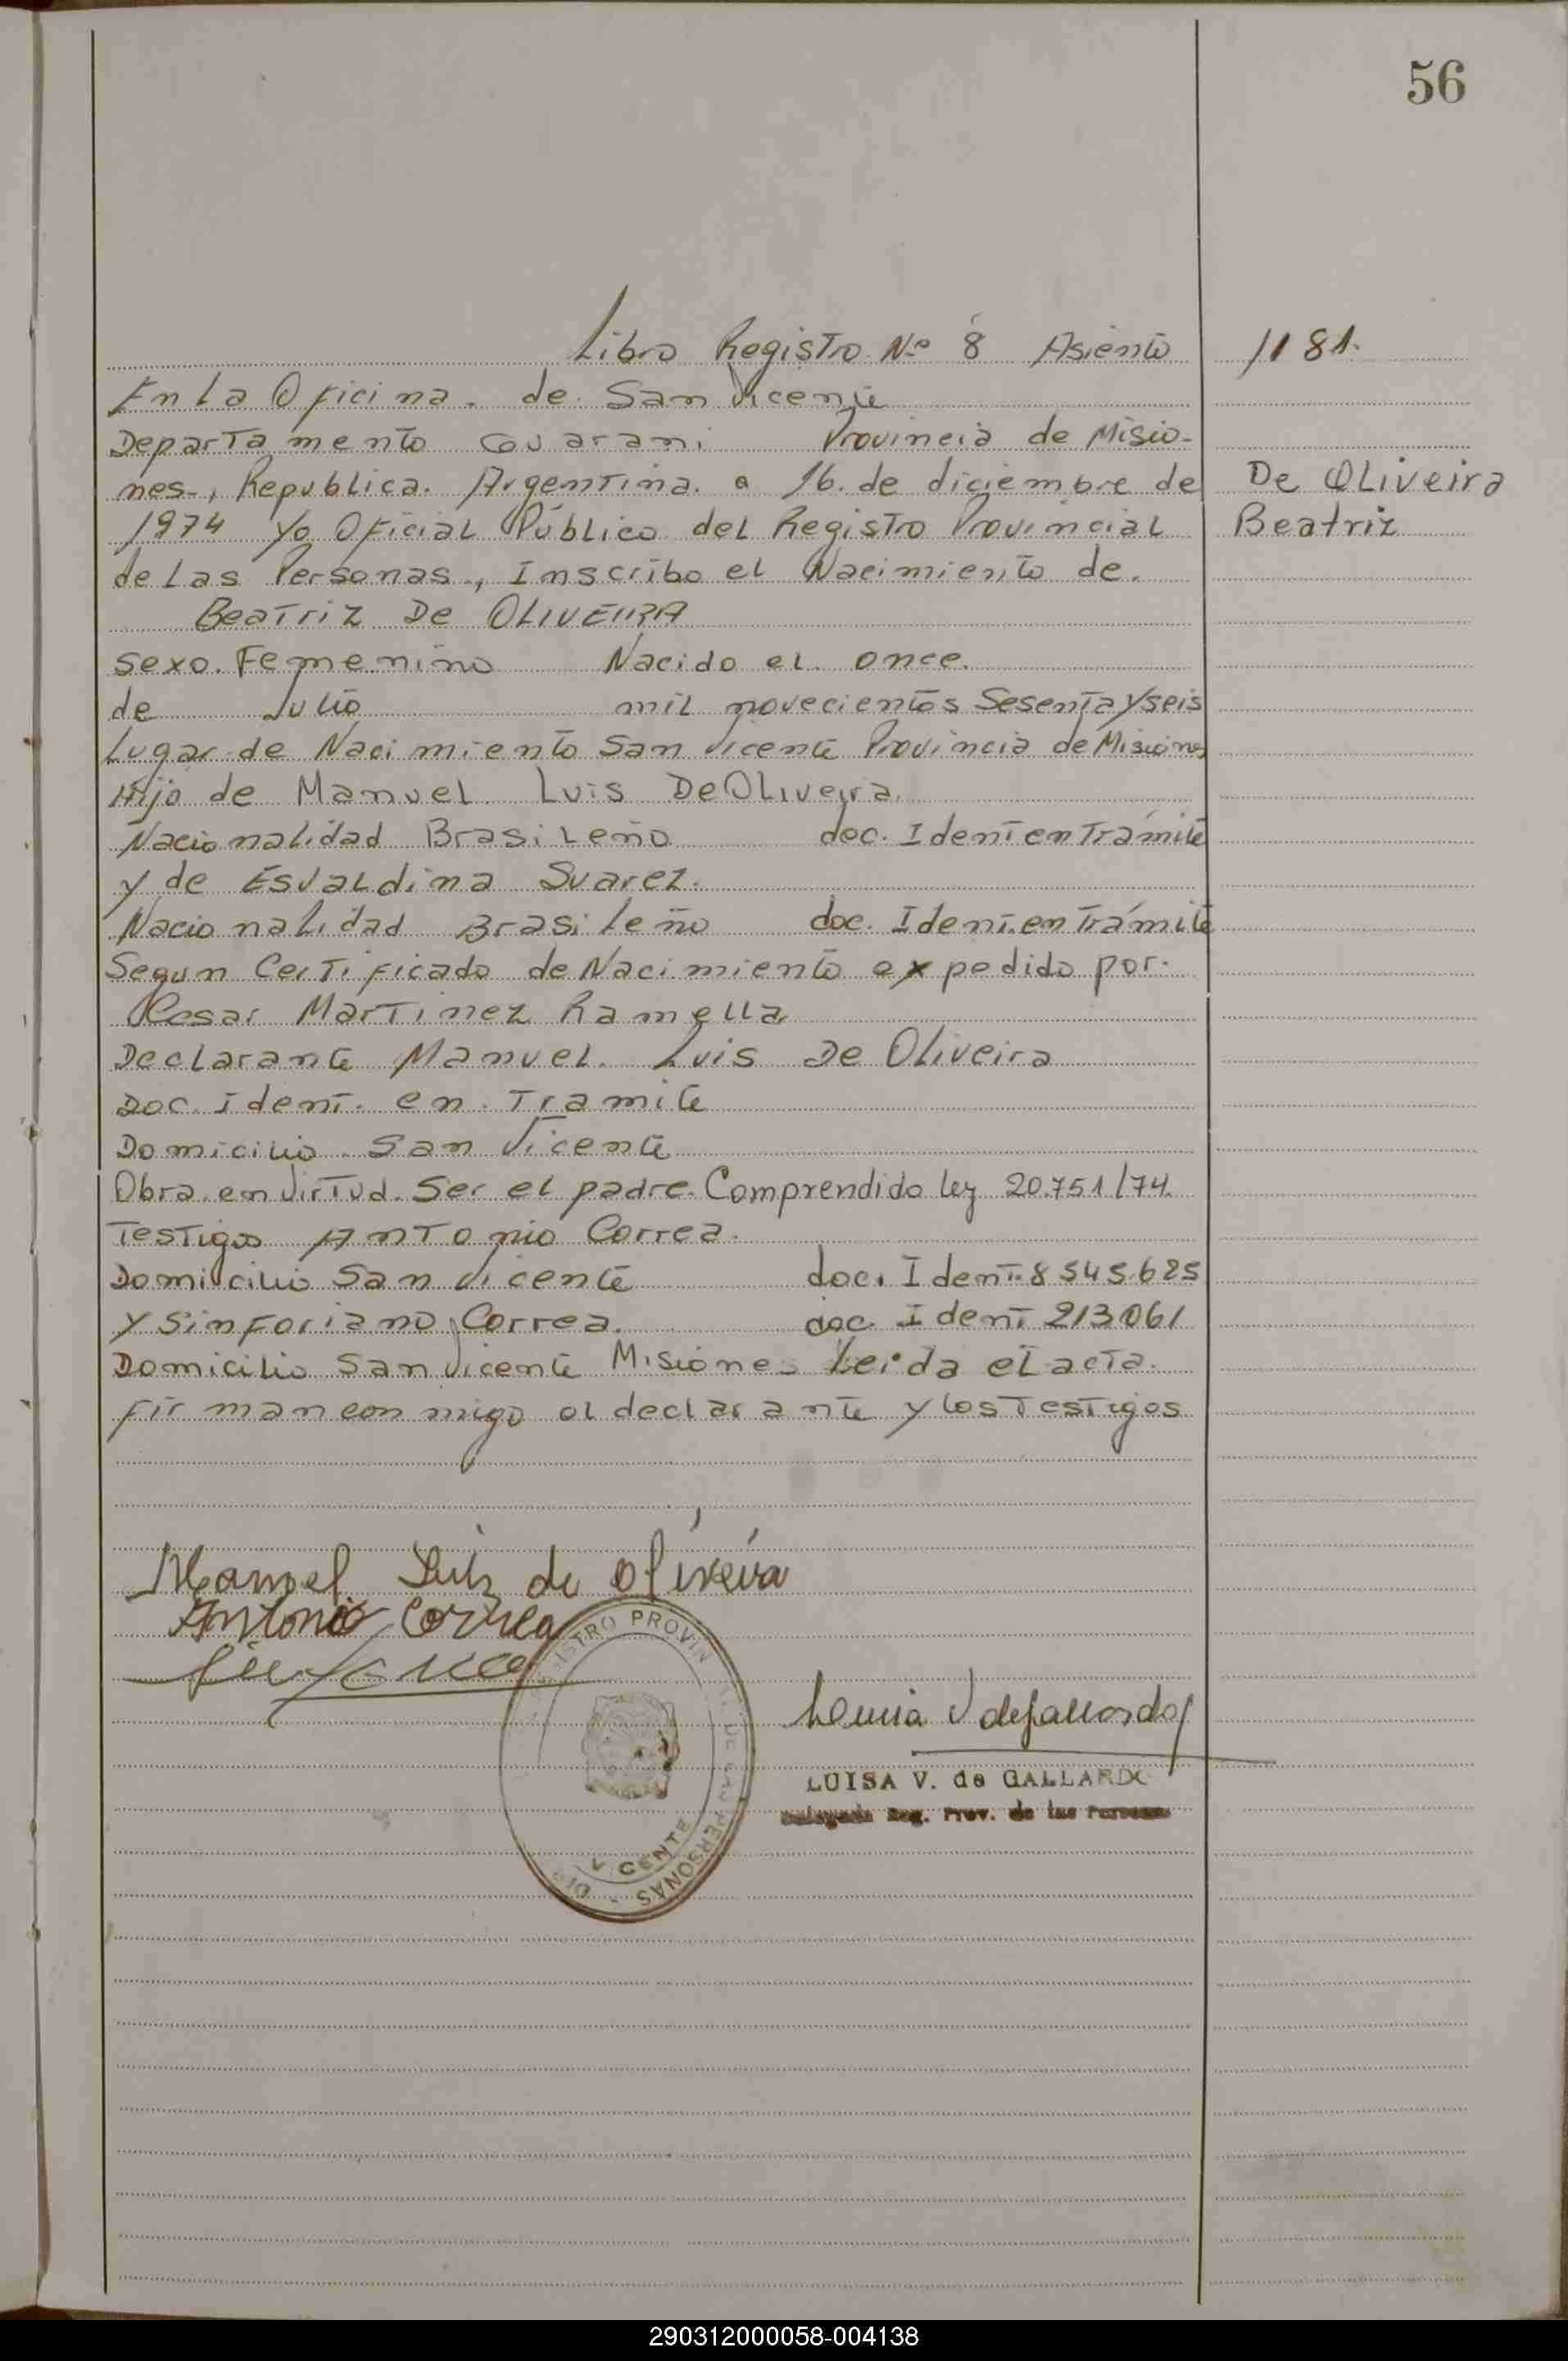 56
Libro Registro Nº 8 Asiento 1181.
En La Oficina. de San Vicente
Departamento Guarani Provincia de Misio-
nes-, Republica. Argentina. a 16. de diciembre de
De Oliveira
1974 Yo Oficial Público del Registro Provincial
Beatriz
de Las Personas., Inscribo el Nacimiento de.
Beatriz De OLIVEIRA
Sexo. Femenino Nacido el. once.
de Julio mil novecientos Sesenta y seis
Lugar de Nacimiento San Vicente Provincia de Misiones
Hijo de Manuel Luis De Oliveira.
Nacionalidad Brasileño doc. Ident en Trámite
y de Esvaldina Suarez.
Nacionalidad Brasileño doc. Ident. en Trámite
Segun Certificado de Nacimiento expedido por.
Cesar Martinez Ramella
Declarante Manuel. Luis De Oliveira
Doc. Ident. en. Tramite
Domicilio. San Vicente
Obra en Virtud. Ser el padre. Comprendido ley 20.751/74.
Testigos Antonio Correa.
Domicilio San Vicente doc. Ident. 8545.625
y Sinforiano Correa. doc Ident 213061
Domicilio San Vicente Misiones Leida el acta.
firman conmigo el declarante y los Testigos
Manoel Luiz de Oliveira
Antonio Correa
REGISTRO PROVIN DE LAS PERSONAS
V CENTE
LUISA V. de GALLARDO
Delegada Reg. Prov. de las Personas
290312000058-004138